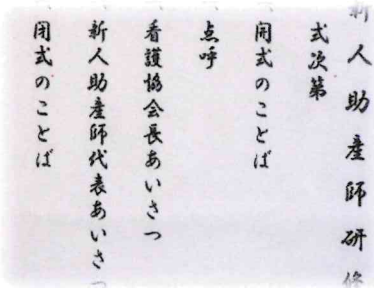 新人助産師研修
式次第
開式のことば
点呼
看護協会長あいさつ
新人助産師代表あいさつ
閉式のことば